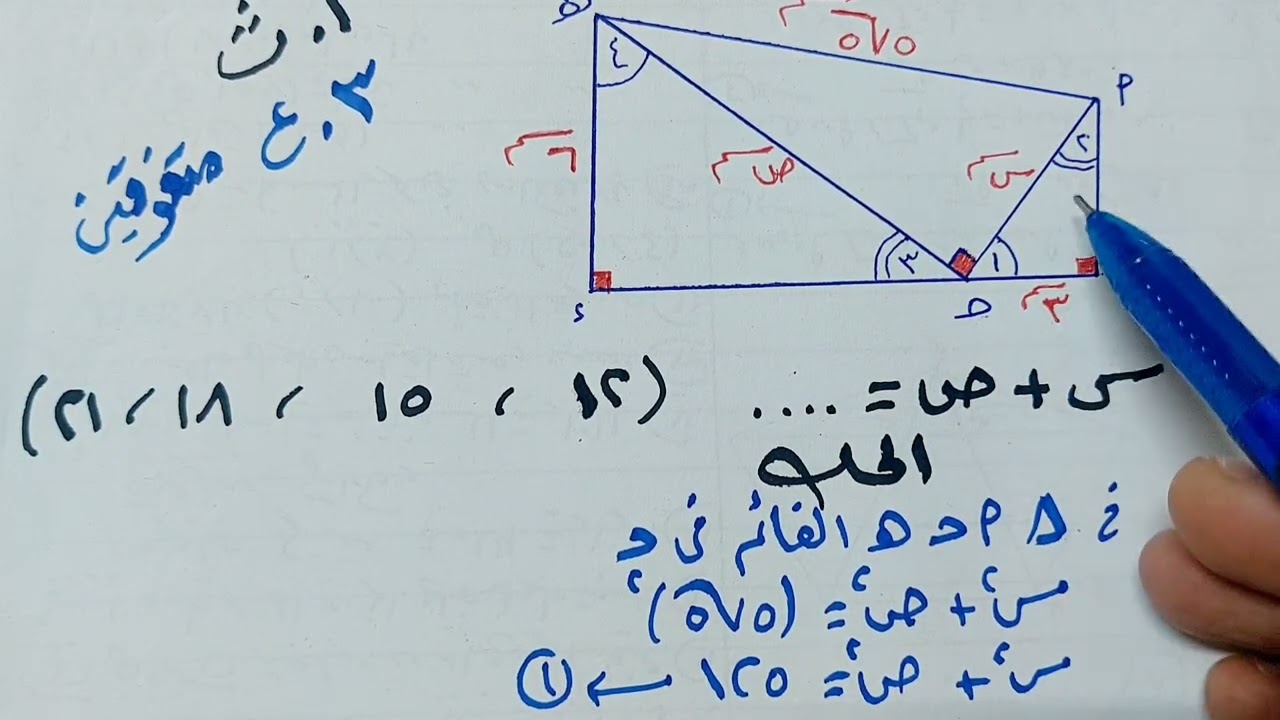 ١.ث
٣.ع
متفوقين
هـ
٥√٥ سم
٤
أ
٢
٦ سم
ص سم
س سم
٣
١
ء
جـ
٣ سم
س + ص = .... (١٢ ، ١٥ ، ١٨ ، ٢١)
الحل
في △ أ جـ هـ القائم في جـ
س² + ص² = (٥√٥)²
س² + ص² = ١٢٥ ← ①